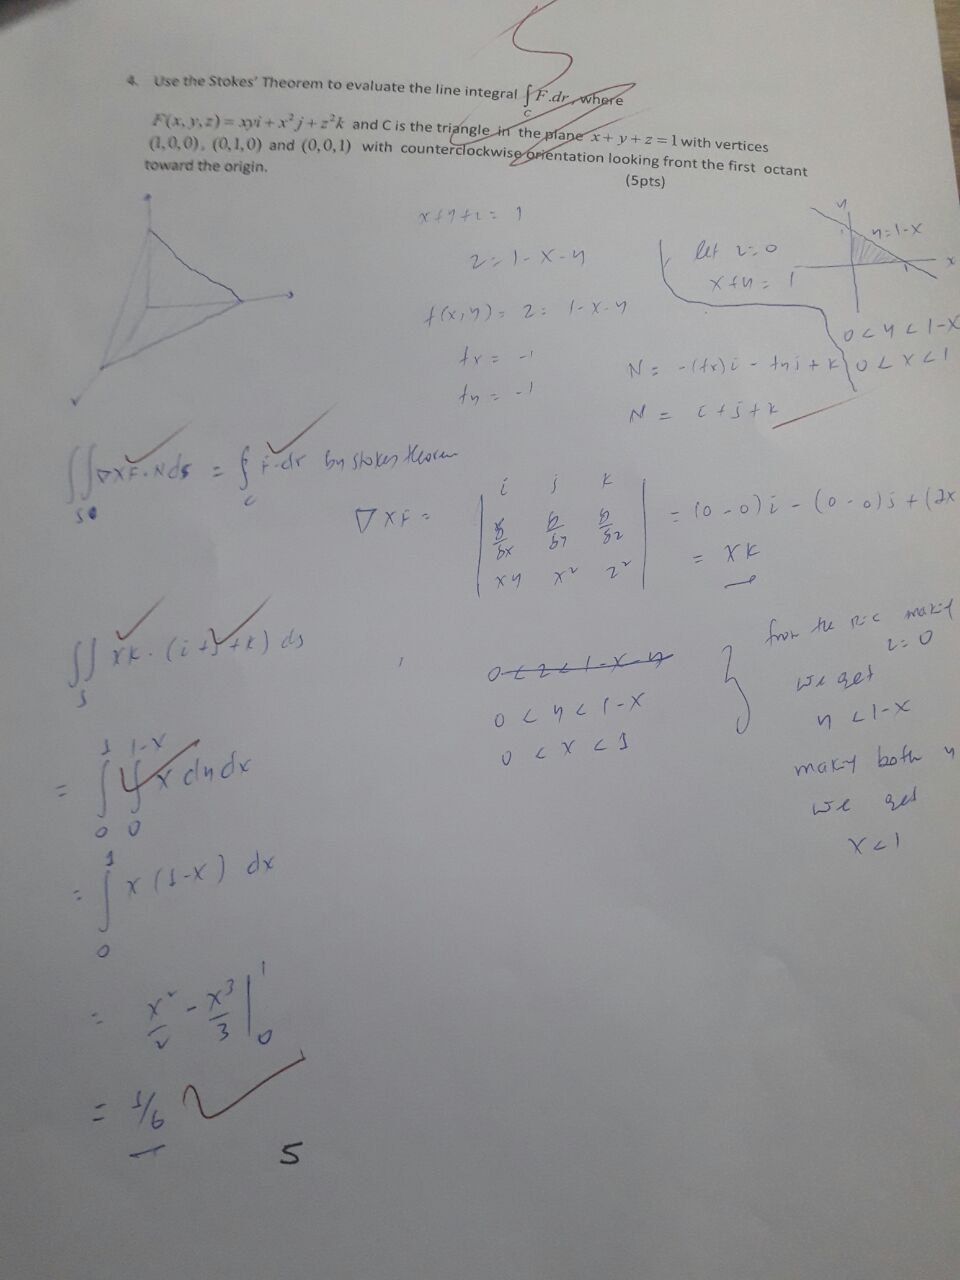 5
4. Use the Stokes' Theorem to evaluate the line integral ∫ F.dr, where
C
F(x, y, z) = xyi + x²j + z²k and C is the triangle in the plane x + y + z = 1 with vertices
(1,0,0), (0,1,0) and (0,0,1) with counterclockwise orientation looking front the first octant
toward the origin. (5pts)
x+y+z = 1
z = 1-x-y
f(x,y) = z = 1-x-y
fx = -1
fy = -1
let z=0
x+y = 1
y
y=1-x
x
1
0<y<1-x
0<x<1
N = -(fx)i - fyj + k
N = i+j+k
∬ ∇×F·N ds = ∮ F·dr by stokes theorem
S C
∇×F = | i j k
δ/δx δ/δy δ/δz
xy x² z² | = (0-0)i - (0-0)j + (2x
= xk
∬ xk·(i+j+k) ds
S
0<z<1-x-y
0<y<1-x
0<x<1
from the
z=0
we get
y<1-x
making both y
we get
x<1
= ∫₀¹ ∫₀¹⁻ˣ x dy dx
= ∫₀¹ x(1-x) dx
= x²/2 - x³/3 |₀¹
= 1/6
5